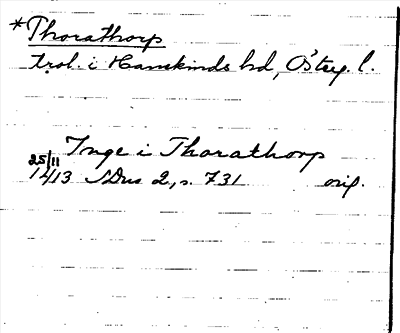 *Thorathorp
trol. i Hanekinds hd, Östeg l.
Inge i Thorathorp
25/11
1413 SDns 2, s. 731 orig.